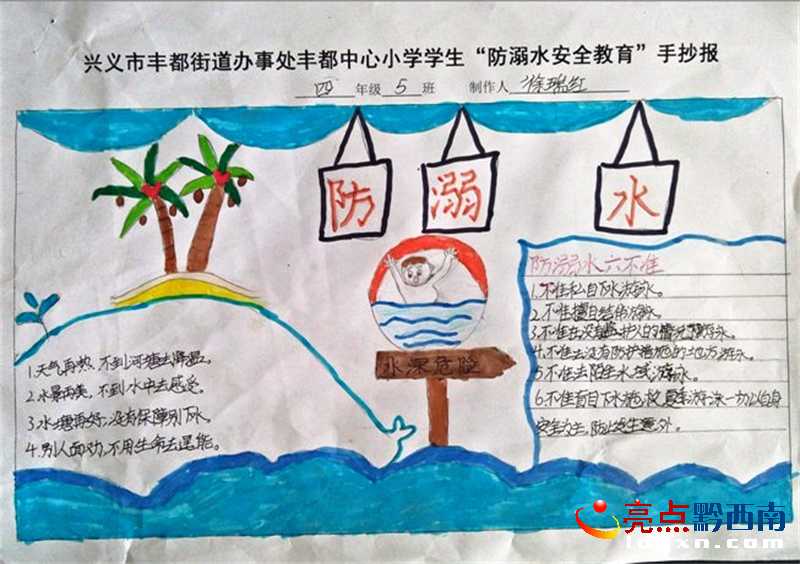 兴义市丰都街道办事处丰都中心小学学生“防溺水安全教育”手抄报
四年级5班 制作人 徐瑞红
防 溺 水
水深危险
1.天气再热,不到河塘去降温。
2.水景再美,不到水中去感受。
3.水塘再好,没有保障别下水。
4.别人面劝,不用生命去逞能。
防溺水六不准
1.不准私自下水游泳。
2.不准擅自结伴游泳。
3.不准在没有监护人的情况下游泳。
4.不准去没有防护措施的地方游泳。
5.不准去陌生水域游泳。
6.不准盲目下水施救,夏季游泳一切以自身
安全为主,防止发生意外。
亮点黔西南